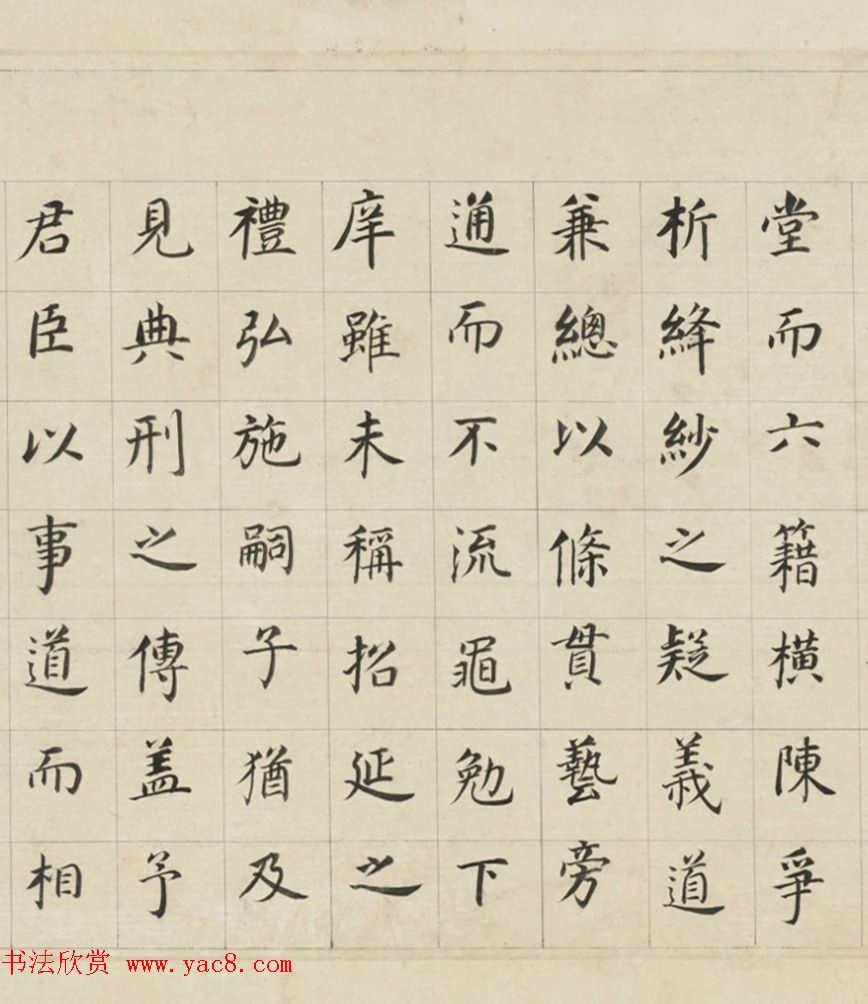 堂而六籍橫陳爭
析絳紗之疑義道
兼總以條貫藝旁
通而不流黽勉下
庠雖未稱招延之
禮弘施嗣子猶及
見典刑之傳盖予
君臣以事道而相
书法欣赏 www.yac8.com